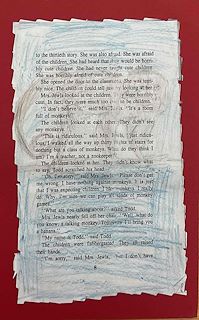 to the thirtieth story. She was also afraid. She was afraid
of the children. She had heard that there would be horri-
bly cute children. She had never taught cute children.
She was horribly afraid of cute children.
She opened the door to the classroom. She was terri-
bly nice. The children could tell just by looking at her.
Mrs. Jewls looked at the children. They were horribly
cute. In fact, they were much too cute to be children.
"I don't believe it," said Mrs. Jewls. "It's a room
full of monkeys!"
The children looked at each other. They didn't see
any monkeys.
"This is ridiculous," said Mrs. Jewls, "just ridicu-
lous. I walked all the way up thirty flights of stairs for
nothing but a class of monkeys. What do they think I
am? I'm a teacher, not a zookeeper!"
The children looked at her. They didn't know what
to say. Todd scratched his head.
"Oh, I'm sorry," said Mrs. Jewls. "Please don't get
me wrong. I have nothing against monkeys. It is just
that I was expecting children. I like monkeys. I really
do. Why, I'm sure we can play all kinds of monkey
games."
"What are you talking about?" asked Todd.
Mrs. Jewls nearly fell off her chair. "Well, what do
you know, a talking monkey. Tomorrow I'll bring you
a banana."
"My name is Todd," said Todd.
The children were flabbergasted. They all raised
their hands.
"I'm sorry," said Mrs. Jewls, "but I don't have
8